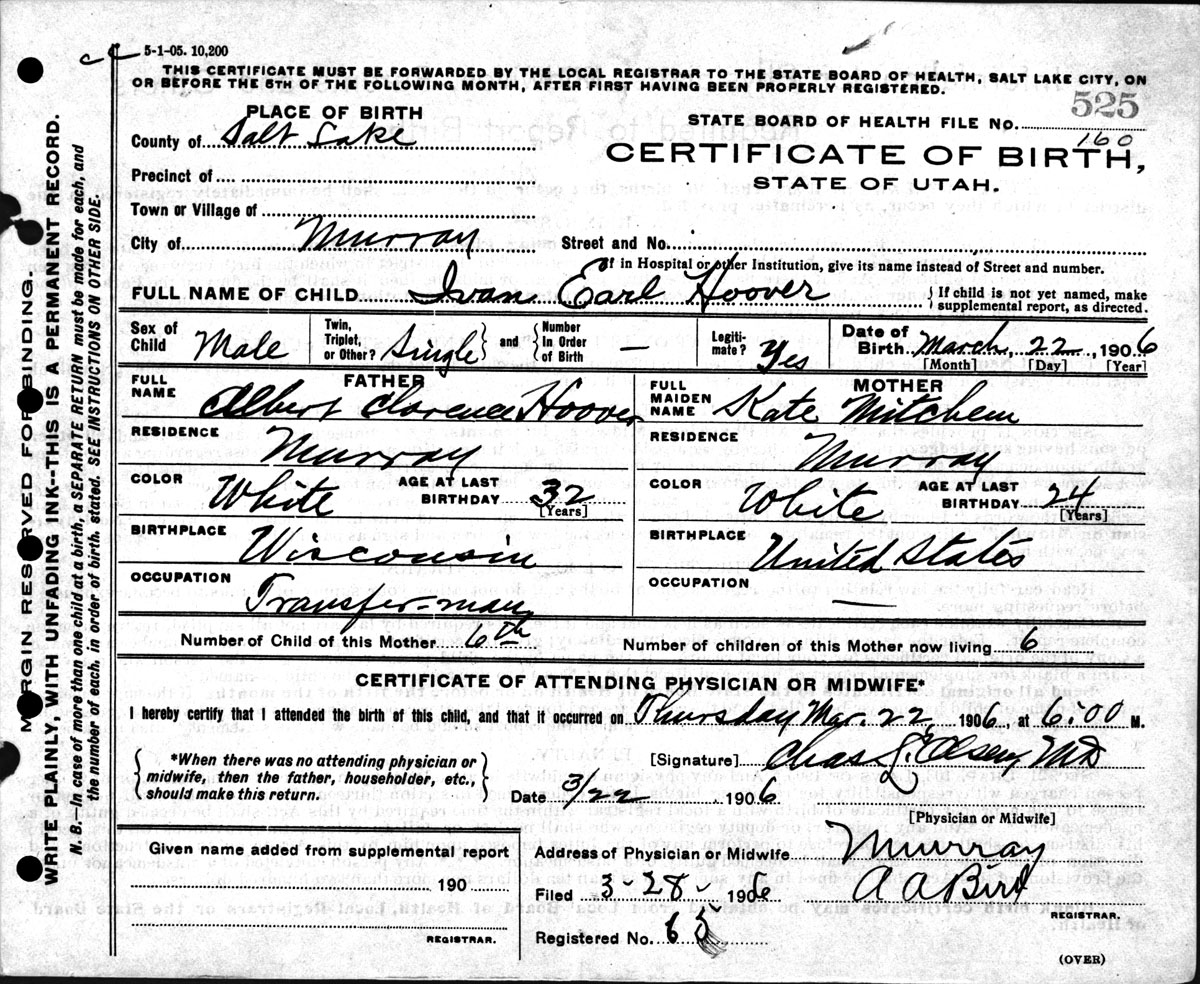 5-1-05. 10,200
THIS CERTIFICATE MUST BE FORWARDED BY THE LOCAL REGISTRAR TO THE STATE BOARD OF HEALTH, SALT LAKE CITY, ON
OR BEFORE THE 5TH OF THE FOLLOWING MONTH, AFTER FIRST HAVING BEEN PROPERLY REGISTERED.
525
PLACE OF BIRTH
STATE BOARD OF HEALTH FILE No.
160
County of Salt Lake
CERTIFICATE OF BIRTH,
Precinct of
STATE OF UTAH.
Town or Village of
City of Murray Street and No.
If in Hospital or other Institution, give its name instead of Street and number.
FULL NAME OF CHILD Ivan Earl Hoover { If child is not yet named, make
supplemental report, as directed.
Sex of Child Male
Twin, Triplet, or Other? Single } and { Number In Order of Birth –
Legitimate? Yes
Date of Birth March, 22, 1906
[Month] [Day] [Year]
FATHER
FULL NAME Albert Clarence Hoover
RESIDENCE Murray
COLOR White AGE AT LAST BIRTHDAY 32
[Years]
BIRTHPLACE Wisconsin
OCCUPATION Transfer-man
MOTHER
FULL MAIDEN NAME Kate Mitchem
RESIDENCE Murray
COLOR White AGE AT LAST BIRTHDAY 24
[Years]
BIRTHPLACE United States
OCCUPATION —
Number of Child of this Mother 6th Number of children of this Mother now living 6
CERTIFICATE OF ATTENDING PHYSICIAN OR MIDWIFE*
I hereby certify that I attended the birth of this child, and that it occurred on Thursday Mar. 22, 1906, at 6:00 M.
{ *When there was no attending physician or
midwife, then the father, householder, etc.,
should make this return. }
[Signature] Chas Olsen MD
Date 3/22 1906
[Physician or Midwife]
Given name added from supplemental report
190
REGISTRAR.
Address of Physician or Midwife Murray
Filed 3-28- 1906 A A Bird
REGISTRAR.
Registered No. 65
(OVER)
MARGIN RESERVED FOR BINDING.
WRITE PLAINLY, WITH UNFADING INK--THIS IS A PERMANENT RECORD.
N. B.—In case of more than one child at a birth, a SEPARATE RETURN must be made for each, and
the number of each, in order of birth, stated. SEE INSTRUCTIONS ON OTHER SIDE.